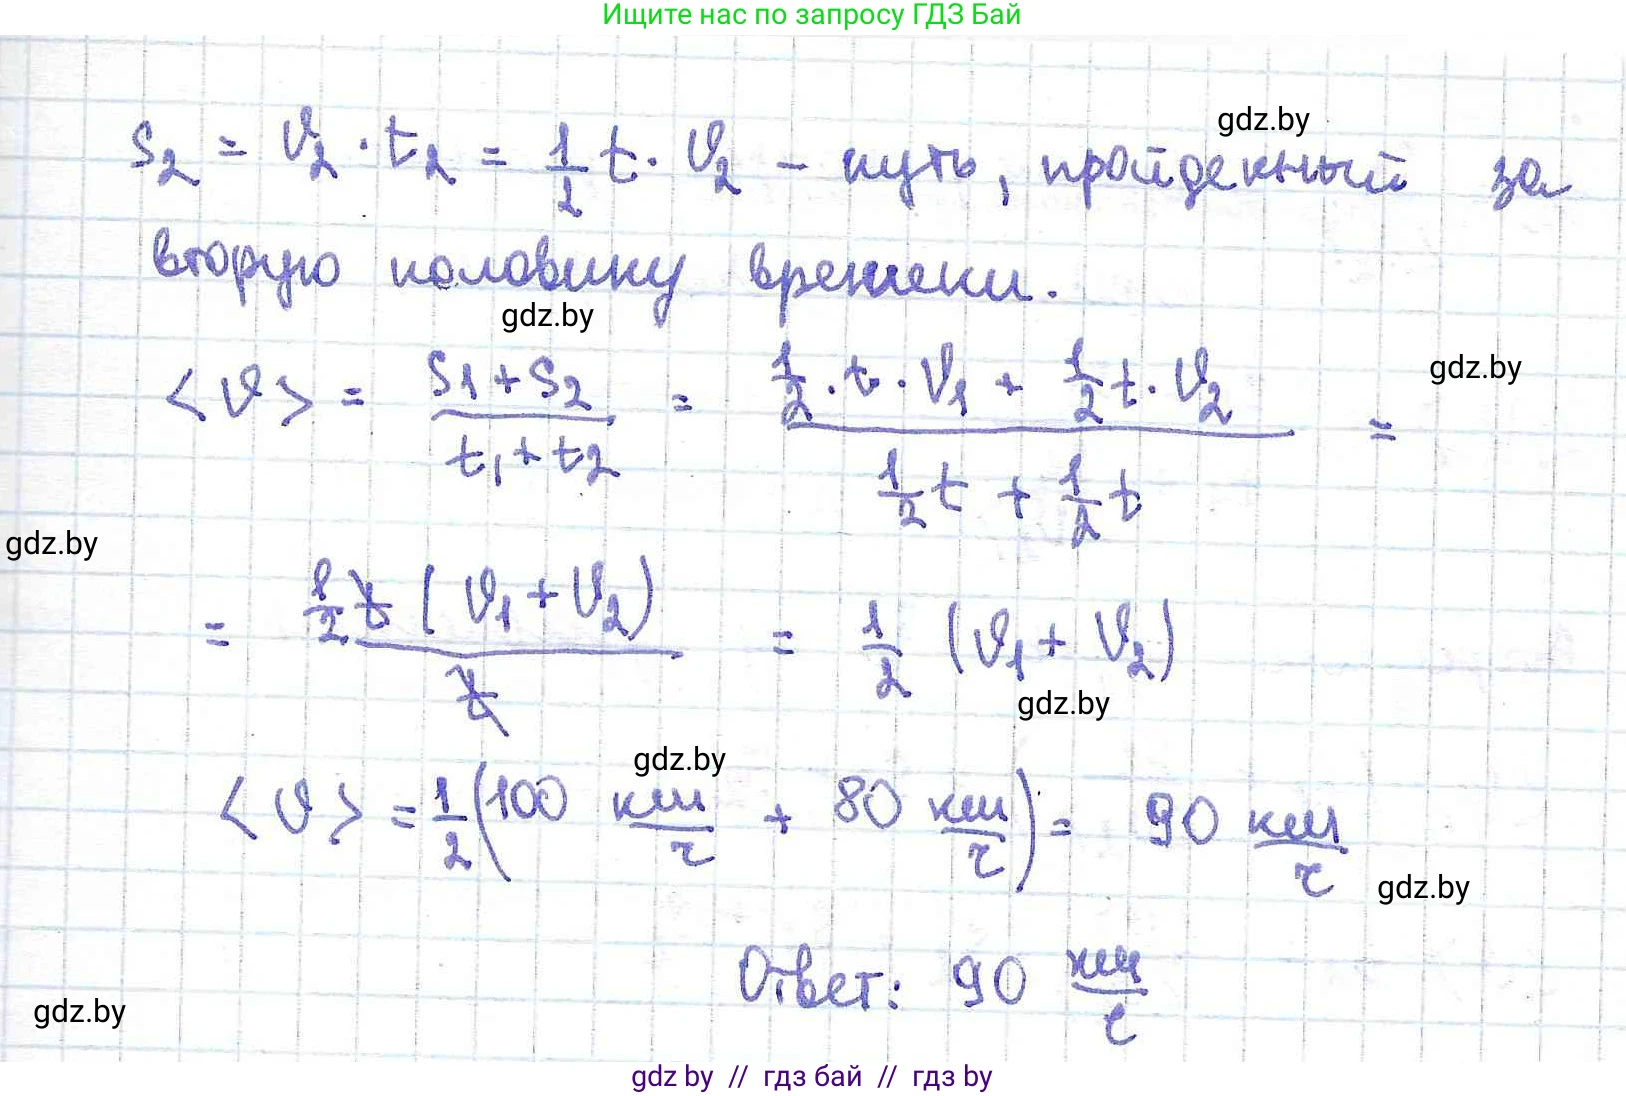 Ищите нас по запросу ГДЗ Бай
gdz.by
S₂ = υ₂ · t₂ = 1/2 t · υ₂ – путь, пройденный за
вторую половину времени.
gdz.by
gdz.by
<υ> = (S₁ + S₂)/(t₁ + t₂) = (1/2 · t · υ₁ + 1/2 t · υ₂)/(1/2 t + 1/2 t) =
gdz.by
= (1/2 t (υ₁ + υ₂))/t = 1/2 (υ₁ + υ₂)
gdz.by
gdz.by
<υ> = 1/2 (100 км/ч + 80 км/ч) = 90 км/ч
gdz.by
Ответ: 90 км/ч
gdz.by
gdz by // гдз бай // гдз by